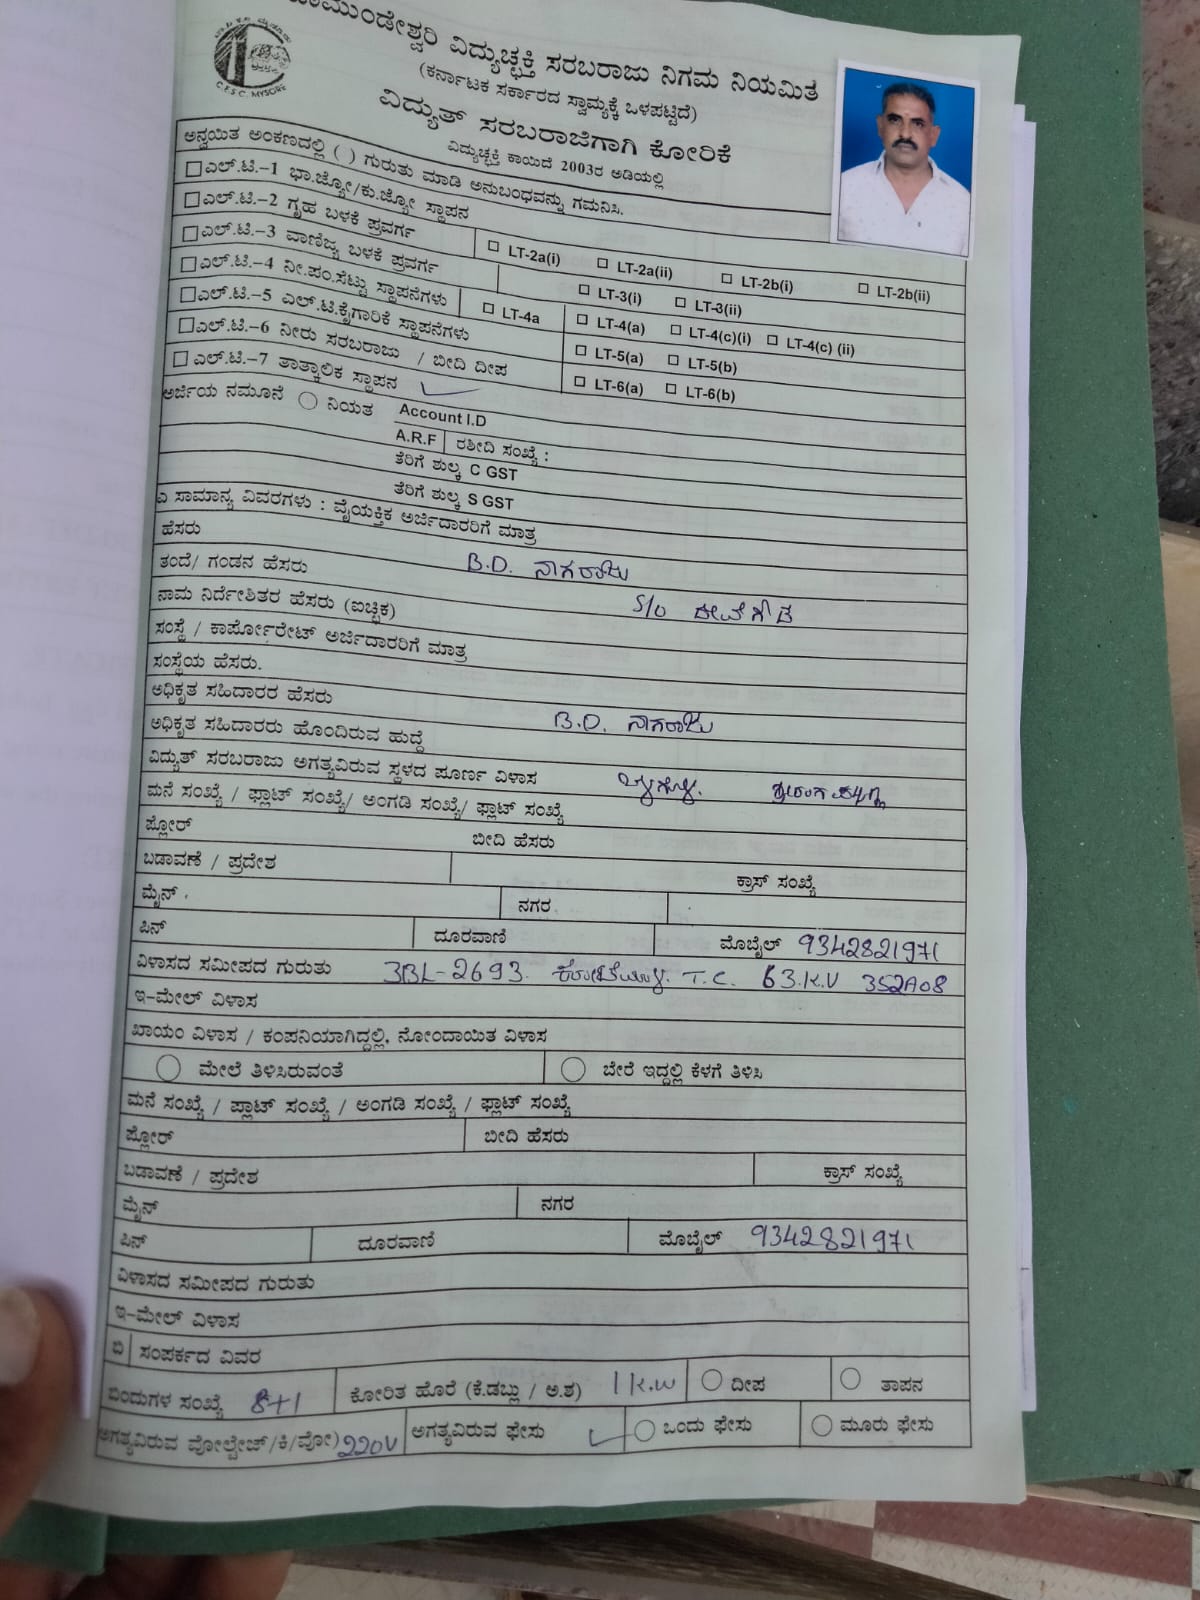 ಚಾಮುಂಡೇಶ್ವರಿ ವಿದ್ಯುಚ್ಛಕ್ತಿ ಸರಬರಾಜು ನಿಗಮ ನಿಯಮಿತ
C.E.S.C. MYSORE
(ಕರ್ನಾಟಕ ಸರ್ಕಾರದ ಸ್ವಾಮ್ಯಕ್ಕೆ ಒಳಪಟ್ಟಿದೆ)
ವಿದ್ಯುತ್ ಸರಬರಾಜಿಗಾಗಿ ಕೋರಿಕೆ
ವಿದ್ಯುಚ್ಛಕ್ತಿ ಕಾಯಿದೆ 2003ರ ಅಡಿಯಲ್ಲಿ
ಅನ್ವಯಿತ ಅಂಕಣದಲ್ಲಿ ( ) ಗುರುತು ಮಾಡಿ ಅನುಬಂಧವನ್ನು ಗಮನಿಸಿ.
ಎಲ್.ಟಿ.-1 ಭಾ.ಜ್ಯೋ/ಕು.ಜ್ಯೋ ಸ್ಥಾಪನ
ಎಲ್.ಟಿ.-2 ಗೃಹ ಬಳಕೆ ಪ್ರವರ್ಗ LT-2a(i) LT-2a(ii) LT-2b(i) LT-2b(ii)
ಎಲ್.ಟಿ.-3 ವಾಣಿಜ್ಯ ಬಳಕೆ ಪ್ರವರ್ಗ LT-3(i) LT-3(ii)
ಎಲ್.ಟಿ.-4 ನೀ.ಪಂ.ಸೆಟ್ಟು ಸ್ಥಾಪನೆಗಳು LT-4a LT-4(a) LT-4(c)(i) LT-4(c) (ii)
ಎಲ್.ಟಿ.-5 ಎಲ್.ಟಿ.ಕೈಗಾರಿಕೆ ಸ್ಥಾಪನೆಗಳು LT-5(a) LT-5(b)
ಎಲ್.ಟಿ.-6 ನೀರು ಸರಬರಾಜು / ಬೀದಿ ದೀಪ LT-6(a) LT-6(b)
ಎಲ್.ಟಿ.-7 ತಾತ್ಕಾಲಿಕ ಸ್ಥಾಪನ
ಅರ್ಜಿಯ ನಮೂನೆ ನಿಯತ Account I.D
A.R.F ರಶೀದಿ ಸಂಖ್ಯೆ :
ತೆರಿಗೆ ಶುಲ್ಕ C GST
ತೆರಿಗೆ ಶುಲ್ಕ S GST
ಎ ಸಾಮಾನ್ಯ ವಿವರಗಳು : ವೈಯಕ್ತಿಕ ಅರ್ಜಿದಾರರಿಗೆ ಮಾತ್ರ
ಹೆಸರು B.D. ನಾಗರಾಜು
ತಂದೆ/ ಗಂಡನ ಹೆಸರು S/o ದೇವೆಗೌಡ
ನಾಮ ನಿರ್ದೇಶಿತರ ಹೆಸರು (ಐಚ್ಛಿಕ)
ಸಂಸ್ಥೆ / ಕಾರ್ಪೋರೇಟ್ ಅರ್ಜಿದಾರರಿಗೆ ಮಾತ್ರ
ಸಂಸ್ಥೆಯ ಹೆಸರು.
ಅಧಿಕೃತ ಸಹಿದಾರರ ಹೆಸರು B.D. ನಾಗರಾಜು
ಅಧಿಕೃತ ಸಹಿದಾರರು ಹೊಂದಿರುವ ಹುದ್ದೆ
ವಿದ್ಯುತ್ ಸರಬರಾಜು ಅಗತ್ಯವಿರುವ ಸ್ಥಳದ ಪೂರ್ಣ ವಿಳಾಸ
ಮನೆ ಸಂಖ್ಯೆ / ಫ್ಲಾಟ್ ಸಂಖ್ಯೆ/ ಅಂಗಡಿ ಸಂಖ್ಯೆ/ ಫ್ಲಾಟ್ ಸಂಖ್ಯೆ
ಫ್ಲೋರ್ ಬೀದಿ ಹೆಸರು
ಬಡಾವಣೆ / ಪ್ರದೇಶ ಕ್ರಾಸ್ ಸಂಖ್ಯೆ
ಮೈನ್ ನಗರ
ಪಿನ್ ದೂರವಾಣಿ ಮೊಬೈಲ್ 9342821971
ವಿಳಾಸದ ಸಮೀಪದ ಗುರುತು 3BL-2693. T.C. 63.K.V 352A08
ಇ-ಮೇಲ್ ವಿಳಾಸ
ಖಾಯಂ ವಿಳಾಸ / ಕಂಪನಿಯಾಗಿದ್ದಲ್ಲಿ, ನೋಂದಾಯಿತ ವಿಳಾಸ
ಮೇಲೆ ತಿಳಿಸಿರುವಂತೆ ಬೇರೆ ಇದ್ದಲ್ಲಿ ಕೆಳಗೆ ತಿಳಿಸಿ
ಮನೆ ಸಂಖ್ಯೆ / ಪ್ಲಾಟ್ ಸಂಖ್ಯೆ / ಅಂಗಡಿ ಸಂಖ್ಯೆ / ಫ್ಲಾಟ್ ಸಂಖ್ಯೆ
ಫ್ಲೋರ್ ಬೀದಿ ಹೆಸರು
ಬಡಾವಣೆ / ಪ್ರದೇಶ ಕ್ರಾಸ್ ಸಂಖ್ಯೆ
ಮೈನ್ ನಗರ
ಪಿನ್ ದೂರವಾಣಿ ಮೊಬೈಲ್ 9342821971
ವಿಳಾಸದ ಸಮೀಪದ ಗುರುತು
ಇ-ಮೇಲ್ ವಿಳಾಸ
ಬಿ ಸಂಪರ್ಕದ ವಿವರ
ಬಿಂದುಗಳ ಸಂಖ್ಯೆ 8+1 ಕೋರಿತ ಹೊರೆ (ಕೆ.ಡಬ್ಲು / ಅ.ಶ) 1 K.W ದೀಪ ತಾಪನ
ಅಗತ್ಯವಿರುವ ವೋಲ್ಟೇಜ್/ಕಿ/ವೋ) 220V ಅಗತ್ಯವಿರುವ ಫೇಸು ಒಂದು ಫೇಸು ಮೂರು ಫೇಸು